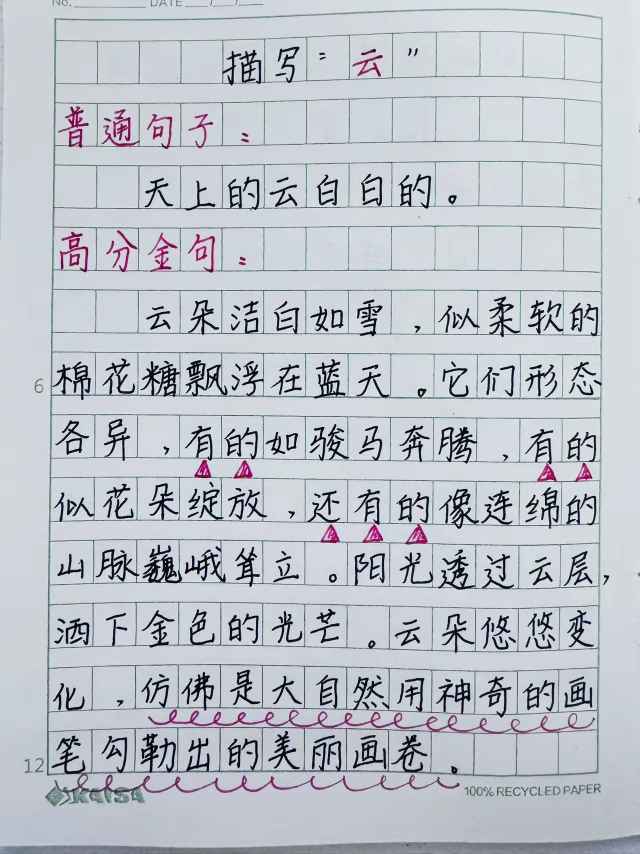 No. DATE / /
描写“云”
普通句子：
天上的云白白的。
高分金句：
云朵洁白如雪，似柔软的
6 棉花糖飘浮在蓝天。它们形态
各异，有的如骏马奔腾，有的
似花朵绽放，还有的像连绵的
山脉巍峨耸立。阳光透过云层，
洒下金色的光芒。云朵悠悠变
化，仿佛是大自然用神奇的画
12 笔勾勒出的美丽画卷。
KAISA 100% RECYCLED PAPER